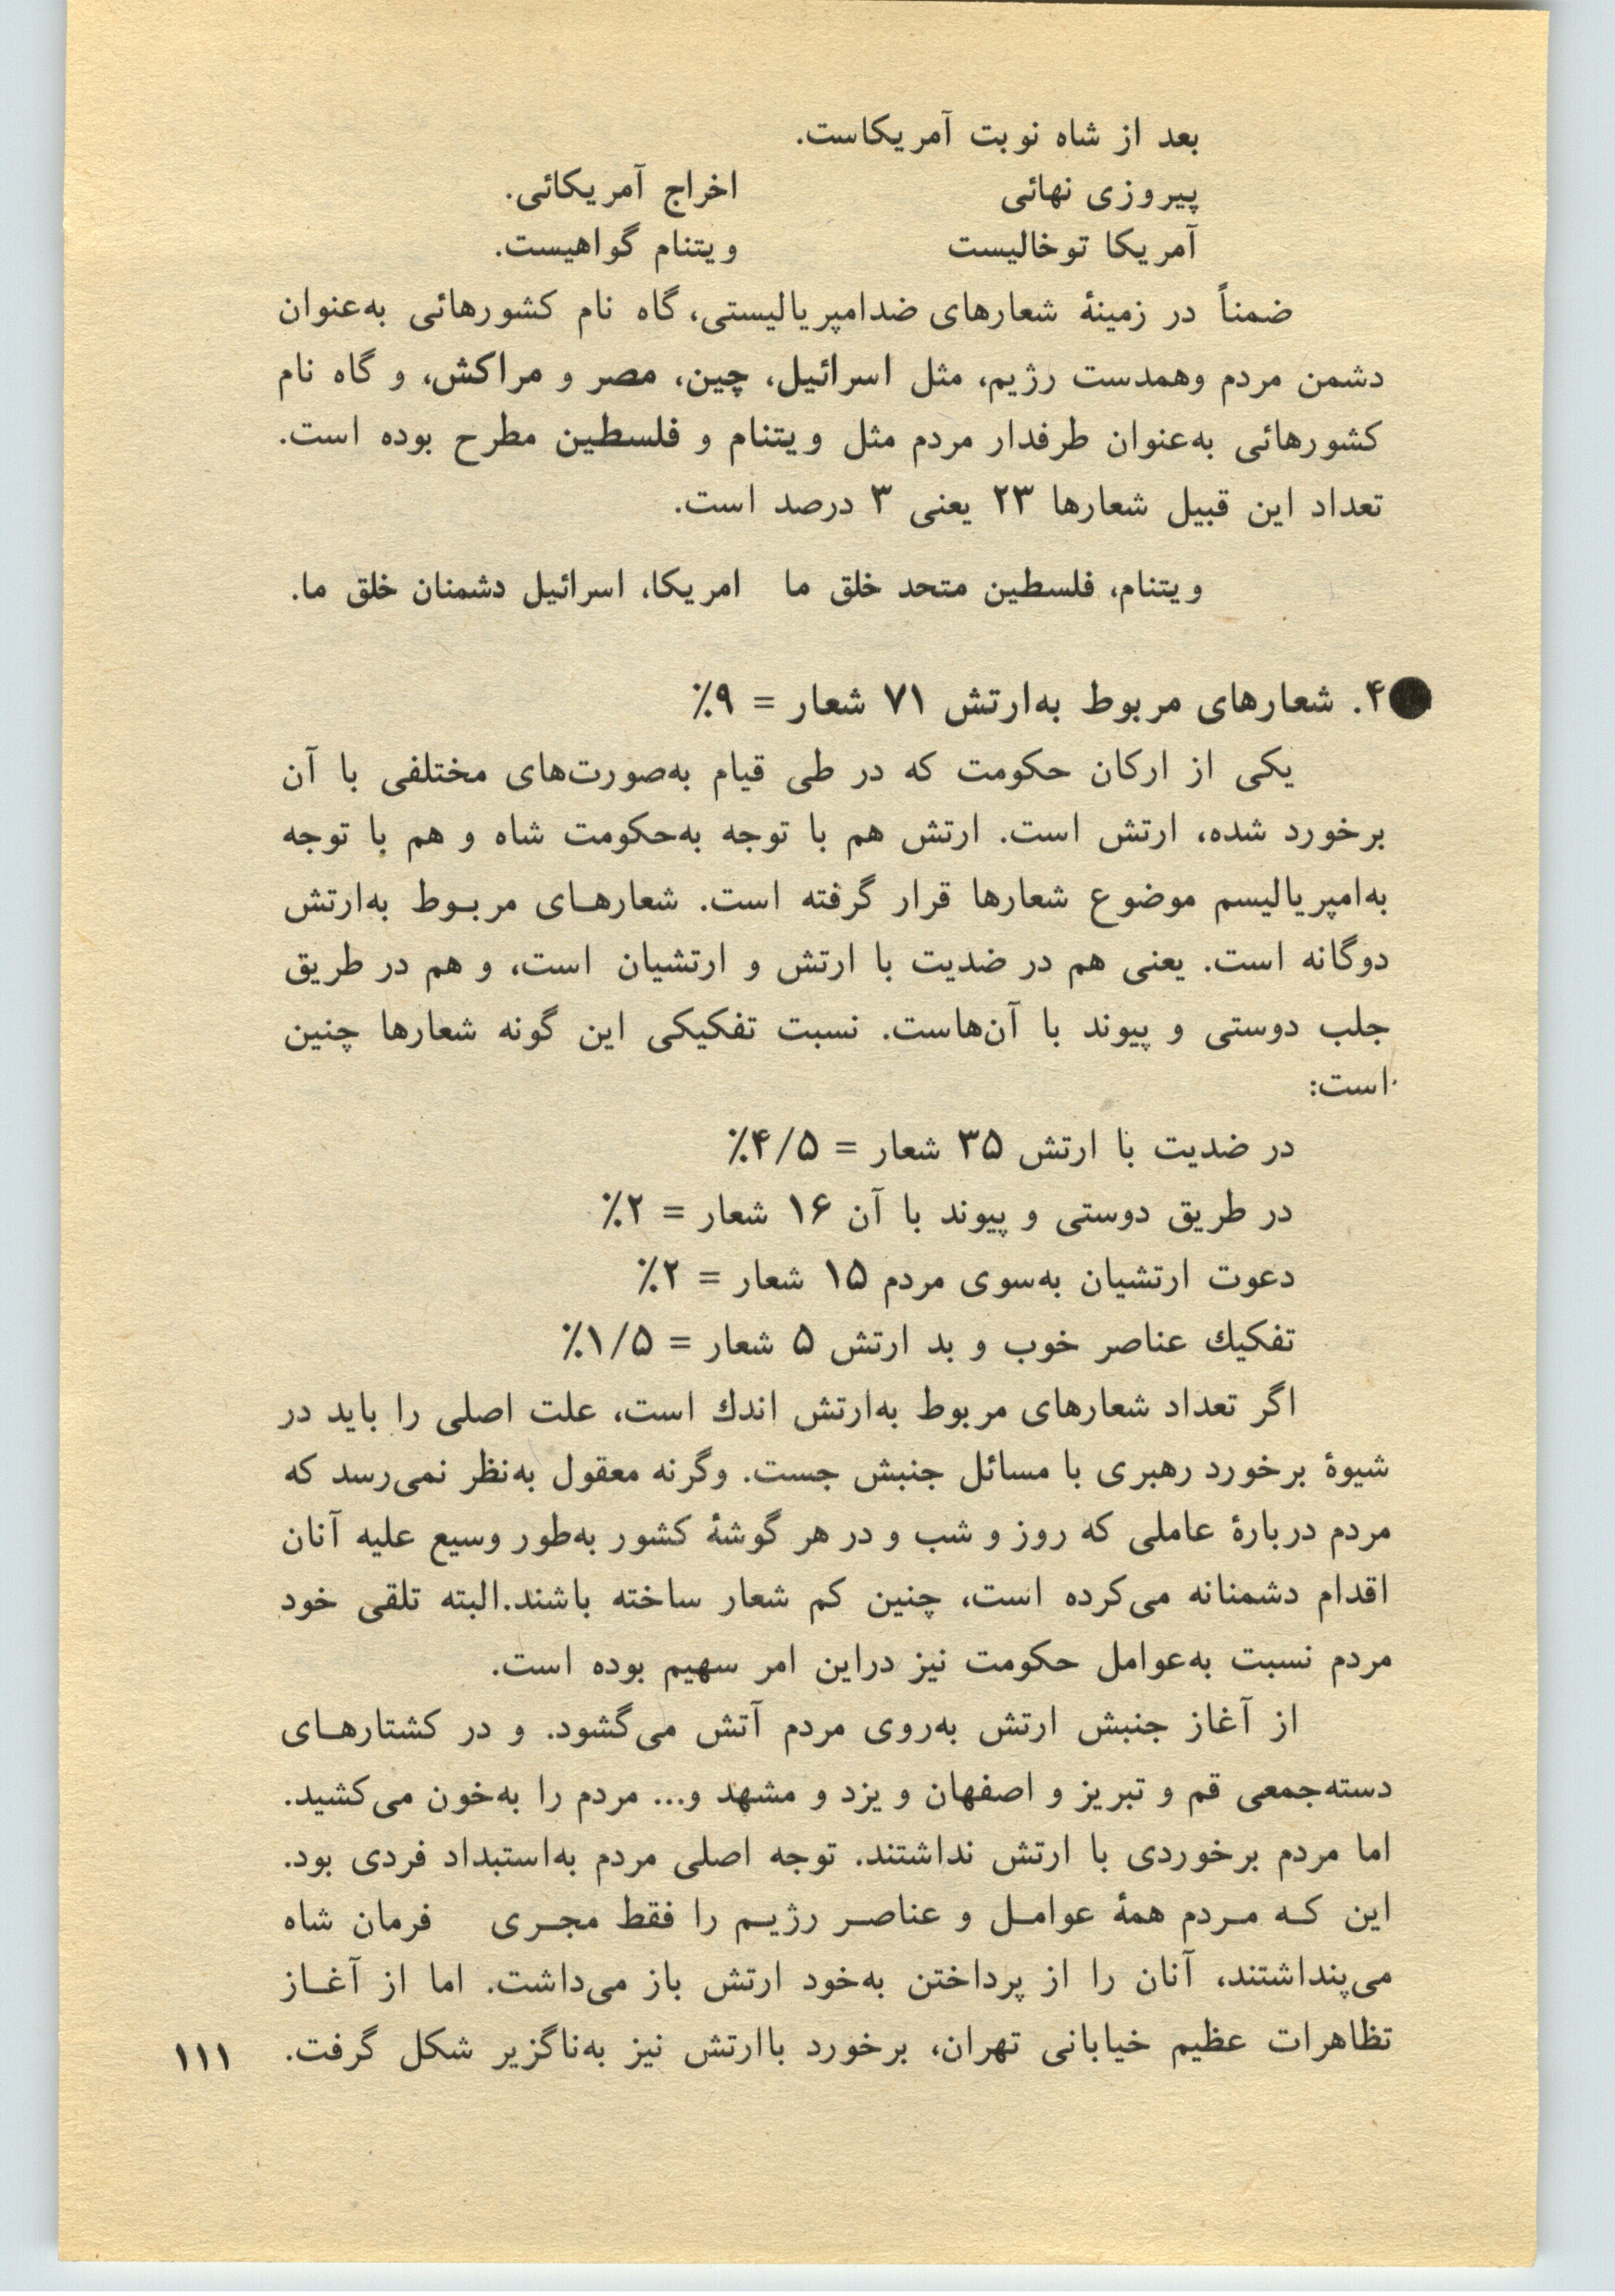 بعد از شاه نوبت آمریکاست.
پیروزی نهائی اخراج آمریکائی.
آمریکا توخالیست ویتنام گواهیست.
ضمناً در زمینهٔ شعارهای ضدامپریالیستی، گاه نام کشورهائی به‌عنوان
دشمن مردم وهمدست رژیم، مثل اسرائیل، چین، مصر و مراکش، و گاه نام
کشورهائی به‌عنوان طرفدار مردم مثل ویتنام و فلسطین مطرح بوده است.
تعداد این قبیل شعارها ۲۳ یعنی ۳ درصد است.
ویتنام، فلسطین متحد خلق ما امریکا، اسرائیل دشمنان خلق ما.
●۴. شعارهای مربوط به‌ارتش ۷۱ شعار = ۹٪
یکی از ارکان حکومت که در طی قیام به‌صورت‌های مختلفی با آن
برخورد شده، ارتش است. ارتش هم با توجه به‌حکومت شاه و هم با توجه
به‌امپریالیسم موضوع شعارها قرار گرفته است. شعارهـای مربـوط به‌ارتش
دوگانه است. یعنی هم در ضدیت با ارتش و ارتشیان است، و هم در طریق
جلب دوستی و پیوند با آن‌هاست. نسبت تفکیکی این گونه شعارها چنین
است:
در ضدیت با ارتش ۳۵ شعار = ۴/۵٪
در طریق دوستی و پیوند با آن ۱۶ شعار = ۲٪
دعوت ارتشیان به‌سوی مردم ۱۵ شعار = ۲٪
تفکیك عناصر خوب و بد ارتش ۵ شعار = ۱/۵٪
اگر تعداد شعارهای مربوط به‌ارتش اندك است، علت اصلی را باید در
شیوهٔ برخورد رهبری با مسائل جنبش جست. وگرنه معقول به‌نظر نمی‌رسد که
مردم دربارهٔ عاملی که روز و شب و در هر گوشهٔ کشور به‌طور وسیع علیه آنان
اقدام دشمنانه می‌کرده است، چنین کم شعار ساخته باشند.البته تلقی خود
مردم نسبت به‌عوامل حکومت نیز دراین امر سهیم بوده است.
از آغاز جنبش ارتش به‌روی مردم آتش می‌گشود. و در کشتارهـای
دسته‌جمعی قم و تبریز و اصفهان و یزد و مشهد و... مردم را به‌خون می‌کشید.
اما مردم برخوردی با ارتش نداشتند. توجه اصلی مردم به‌استبداد فردی بود.
این کـه مـردم همهٔ عوامـل و عناصـر رژیـم را فقط مجـری فرمان شاه
می‌پنداشتند، آنان را از پرداختن به‌خود ارتش باز می‌داشت. اما از آغـاز
تظاهرات عظیم خیابانی تهران، برخورد باارتش نیز به‌ناگزیر شکل گرفت.
۱۱۱